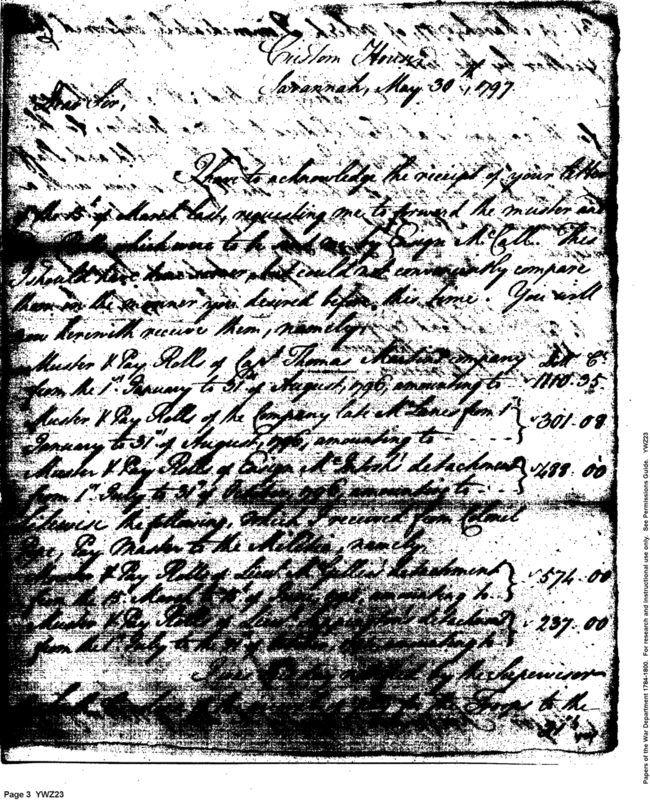 Custom House
Savannah, May 30th, 1797
Dear Sir,
I have to acknowledge the receipt of your letter
of the 15th of March last, requesting me to forward the muster and
Rolls which were to be me by Ensign McCall. This
I should have done sooner, but could not conveniently compare
them in the manner you desired before this time. You will
now herewith receive them, namely,
Muster & Pay Rolls of Capt Thomas Martin's company Doll Cs
from the 1st January to 31st of August, 1796, amounting to 1210.35
Muster & Pay Rolls of the Company late from 1st 301.08
January to 31st of August, 1796, amounting to
Muster & Pay Rolls of Ensign McIntosh's detachment 488.00
from 1st July to 31st of October, 1796, amounting to
Likewise the following, which I received from Colonel
Pay Master to the Militia, namely,
Muster & Pay Rolls of Lieut detachment 574.00
from the 15 March to amounting to
Muster & Pay Rolls of detachment 237.00
from the 1st July to the amounting to
by the Supervisor
to the
31st
Page 3 YWZ23
Papers of the War Department 1784-1800. For research and instructional use only. See Permissions Guide. YWZ23